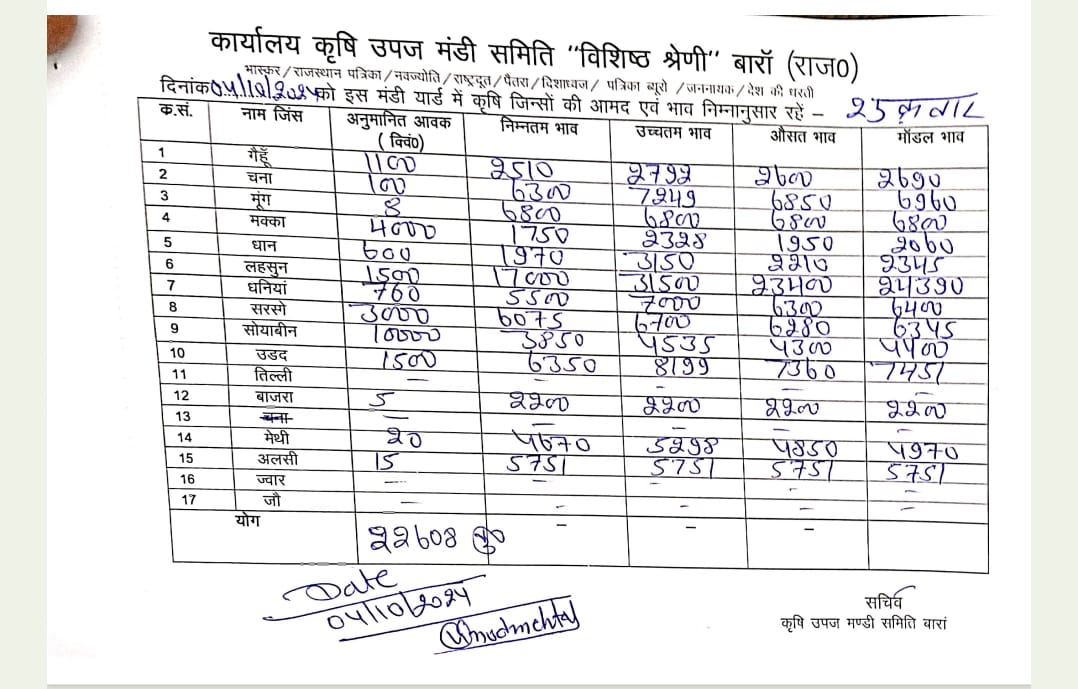 कार्यालय कृषि उपज मंडी समिति "विशिष्ठ श्रेणी" बारॉ (राज0)
भास्कर/राजस्थान पत्रिका/नवज्योति/राष्ट्रदूत/पैंतरा/दिशाध्वज/ पत्रिका ब्यूरो /जननायक/देश की धरती
दिनांक 04/10/2024 को इस मंडी यार्ड में कृषि जिन्सों की आमद एवं भाव निम्नानुसार रहें –
क.सं. नाम जिंस अनुमानित आवक (क्विं0) निम्नतम भाव उच्चतम भाव औसत भाव मॉडल भाव
1 गैहूँ 1100 2510 2792 2600 2690
2 चना 100 6300 7249 6850 6960
3 मूंग 8 6800 6800 6800 6800
4 मक्का 4000 1750 2328 1950 2060
5 धान 600 1970 3150 2210 2345
6 लहसुन 1500 17000 31500 23400 24390
7 धनियां 760 5500 7000 6300 6400
8 सरसों 3000 6075 6700 6280 6345
9 सोयाबीन 10000 3850 4535 4300 4400
10 उडद 1500 6350 8199 7360 7451
11 तिल्ली – – – – –
12 बाजरा 5 2200 2200 2200 2200
13 चना – – – – –
14 मेथी 20 4670 5298 4850 4970
15 अलसी 15 5751 5751 5751 5751
16 ज्वार – – – – –
17 जौ – – – – –
योग 22608 – – –
Date
04/10/2024
सचिव
कृषि उपज मण्डी समिति बारां